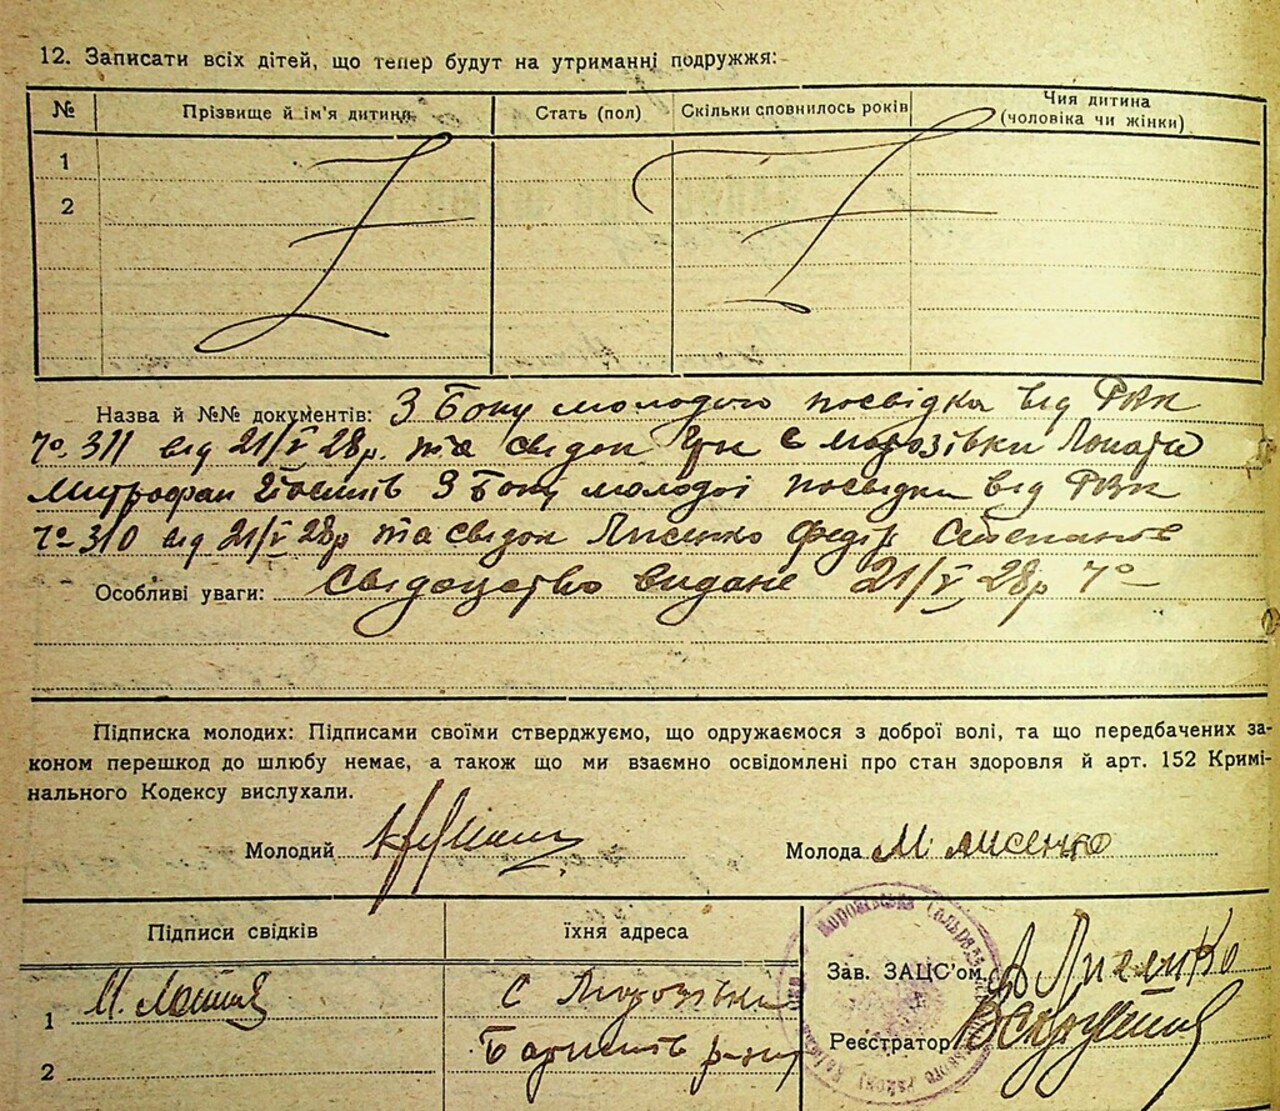 12. Записати всіх дітей, що тепер будут на утриманні подружжя:
№ Прізвище й ім'я дитини Стать (пол) Скільки сповнилось років Чия дитина
(чоловіка чи жінки)
1
2
Назва й №№ документів: З боку молодого посвідка від РВК
№ 311 від 21/V 28р. та свідок с Морозівки
Митрофан З боку молодої посвідка від РВК
№ 310 від 21/V 28р та свідок Лисенко Федір
Особливі уваги: Свідоцтво видане 21/V 28р №
Підписка молодих: Підписами своїми стверджуємо, що одружаємося з доброї волі, та що передбачених за-
коном перешкод до шлюбу немає, а також що ми взаємно освідомлені про стан здоровля й арт. 152 Кримі-
нального Кодексу вислухали.
Молодий Молода М Лисенко
Підписи свідків їхня адреса
Зав. ЗАЦС'ом Лисенко
1 М. с Морозівки
Реєстратор
2